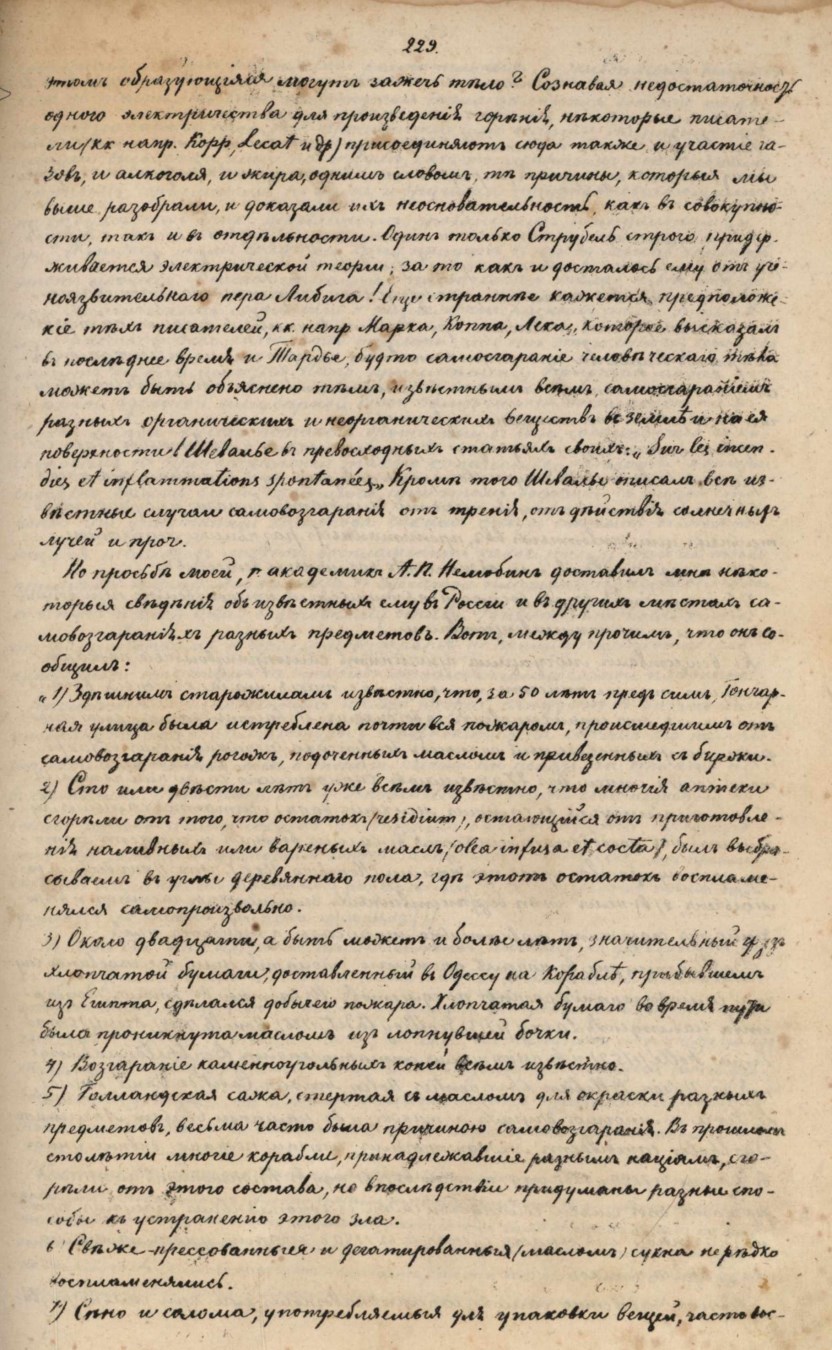 229.
этомъ образующіяся могутъ зажечь тѣло? Сознавая недостаточность
одного электричества для произведенія горѣнія, нѣкоторые писате-
ли (кк напр. Коррр, Lecat и др) присоединяютъ сюда также и участіе га-
зовъ, и алкоголя, и жира, однимъ словомъ, тѣ причины, которыя мы
выше разобрали, и доказали ихъ неосновательность, какъ въ совокупно-
сти, такъ и въ отдѣльности. Одинъ только Струбель строго придер-
живается электрической теоріи; за то какъ и досталось ему отъ уч-
ноязвительнаго пера Либига! Еще страннѣе кажется предположе-
ніе тѣхъ писателей, кк напр Марка, Коппа, Лека, которые высказалъ
въ послѣднее время и Тардье, будто самосгараніе человѣческаго тѣла
можетъ быть объяснено тѣмъ, извѣстнымъ всѣмъ самосгараніемъ
разныхъ органическихъ и неорганическихъ веществъ въ землѣ и на ея
поверхности (Шевалье въ превосходныхъ статьяхъ своихъ: „Sur les incen-
dies et inflammations spontanées„ Кромѣ того Шевалье описалъ всѣ из-
вѣстные случаи самовозгаранія отъ тренія, отъ дѣйствія солнечныхъ
лучей и проч.
По просьбѣ моей, г. академикъ А. П. Нелюбинъ доставилъ мнѣ нѣко-
торыя свѣдѣнія объ извѣстныхъ ему въ Россіи и въ другихъ мѣстахъ са-
мовозгараніяхъ разныхъ предметовъ. Вотъ, между прочимъ, что онъ со-
общилъ:
„1) Здѣшнимъ старожиламъ извѣстно, что, за 50 лѣтъ предъ симъ, Гончар-
ная улица была истреблена почти вся пожаромъ, происшедшимъ отъ
самовозгаранія рогожъ, подоченныхъ масломъ и привезенныхъ съ биржи.
2) Сто или двѣсти лѣтъ уже всѣмъ извѣстно, что многія аптеки
сгорѣли отъ того, что остатокъ (residium), остающійся отъ приготовле-
нія наливныхъ или вареныхъ маслъ (olea infusa et cocta), былъ выбра-
сываемъ въ углы деревяннаго пола, гдѣ этотъ остатокъ воспламе-
нялся самопроизвольно.
3) Около двадцати, а быть можетъ и болѣе лѣтъ, значительный грузъ
хлопчатой бумаги, доставленный въ Одессу на кораблѣ, прибывшемъ
изъ Египта, сдѣлался добычею пожара. Хлопчатая бумага во время пути
была проникнута масломъ изъ лопнувшей бочки.
4) Возгараніе каменноугольныхъ копей всѣмъ извѣстно.
5) Голландская сажа, стертая съ масломъ для окраски разныхъ
предметовъ, весьма часто была причиною самовозгаранія. Въ прошломъ
столѣтіи многіе корабли, принадлежавшіе разнымъ націямъ, сго-
рѣли отъ этого состава, но впослѣдствіи придуманы разные спо-
собы къ устраненію этого зла.
6 Свѣже-прессованныя и декатированныя (масломъ) сукна нерѣдко
воспламенялись.
7) Сѣно и солома, употребляемыя для упаковки вещей, часто вос-